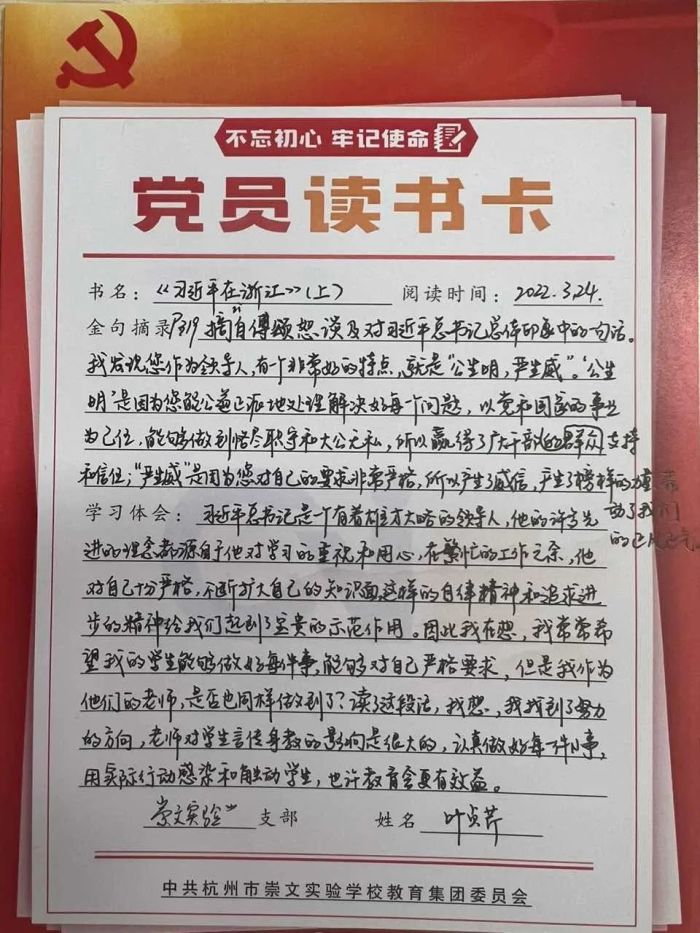 不忘初心 牢记使命
党员读书卡
书名：《习近平在浙江》(上) 阅读时间：2022.3.24.
金句摘录 P319 摘自傅颐想谈及对习近平总书记总体印象中的一句话。
我发现您作为领导人，有一个非常好的特点，就是"公生明，严生威"。"公生
明"是因为您能公道正派地处理解决好每个问题，以党和国家的事业
为己任，能够做到恪尽职守和大公无私，所以赢得了广大干部的群众支持
和信任；"严生威"是因为您对自己的要求非常严格，所以产生了威信，产生了榜样的力量
动了我们
学习体会：习近平总书记是个有着雄才大略的领导人，他的许多先
的正风正气
进的理念都源自于他对学习的重视和用心，在繁忙的工作之余，他
对自己十分严格，不断扩大自己的知识面，这样的自律精神和追求进
步的精神给我们起到了宝贵的示范作用。因此我在想，我常常希
望我的学生能够做好每件事，能够对自己严格要求，但是我作为
他们的老师，是否也同样做到了？读了这段话，我想，我找到了努力
的方向，老师对学生言传身教的影响是很大的，认真做好每一件小事，
用实际行动感染和触动学生，也许教育会更有效益。
崇文实验 支部 姓名 叶贞芹
中共杭州市崇文实验学校教育集团委员会